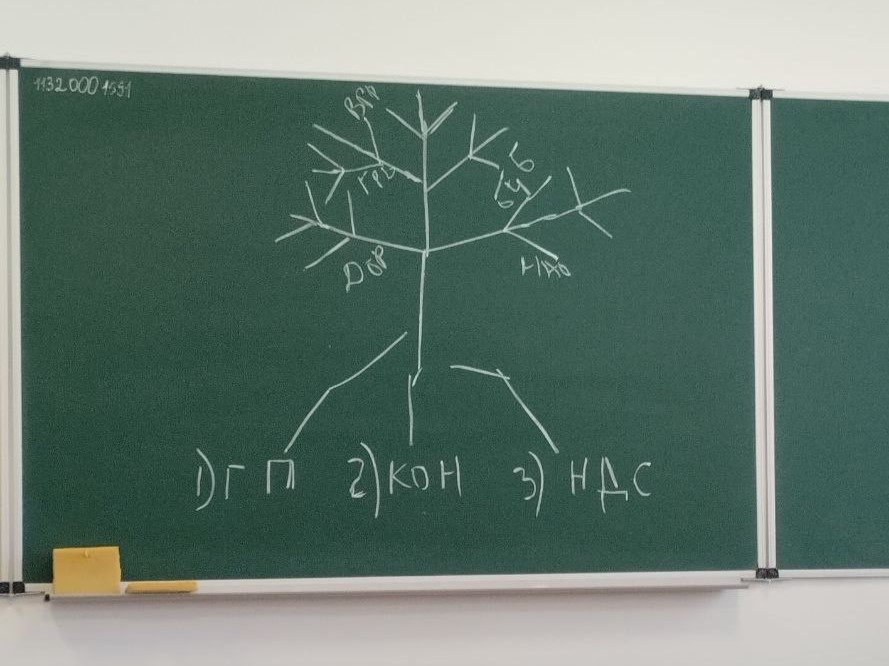 11320001591
ВРП
ГРЦ
БУБ
ДОР
НАО
1) ГП 2) КОН 3) НДС